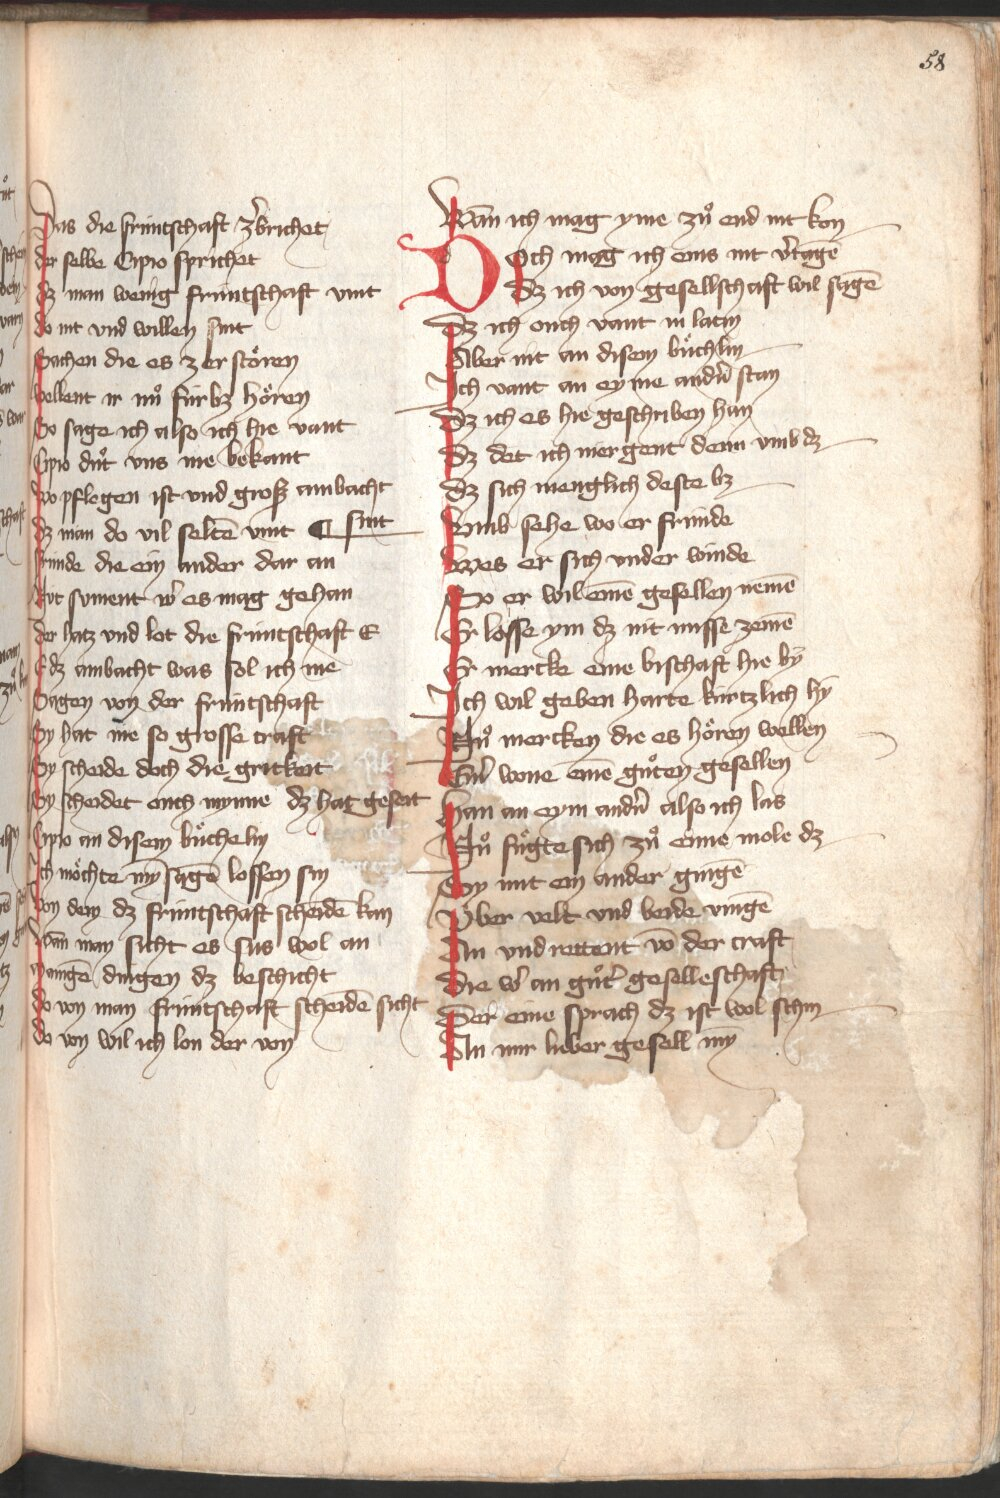 58
Das die fruntschaft zˀbrichet
der selbe Cipio sprichet
dz man wenig fruntschaft vint
do nit vnd willen sint
Sachen die es zerstoͤren
wellent ir nuͦ fúrbz hoͤren
So sage ich also ich hie vant
Cipio duͦt vns me bekant
Wo pflegen ist vnd groß ambacht
dz man do vil seltē vint ¶ sint
frunde die ein ander dar an
der hatz vnd lot die fruntschaft E
E dz ambacht was sol ich me
Sagen von der fruntschaft
Sy hat nie so grosse craft
Sy scheide doch die gritkeit
Sy scheidet ouch mynne dz hat geseit
Cipio an disem buͤchelin
Ich moͤchte mȳ sagē lossen sin
Von dem dz fruntschaft scheidē kan
Wan man sicht es sus wol an
mangē dingen dz beschicht
do von man fruntschaft scheidē sicht
do von wil ich lon der von
Wān ich mag yme zuͦ end nit kon
Doch mag ich eins nit v̂tagē
dz ich von gesellschaft wil sagē
Dz ich ouch vant in latin
Aber nit an disem buͤchlin
Ich vant an eyme andˀn stan
Dz ich es hie geschriben han
Dz det ich niergent denn vmb dz
Dz sich menglich deste bz
Vmb sehe wo er frúnde
Wes er sich vnder winde
So er wil einē gesellen nemē
Er losse ym dz nit misse zemē
Er mercke eine bischaft hie by
Ich wil geben harte kúrtzlich hy
Nuͦ mercken die es hoͤren wellen
wone einē guͦten gesellen
han an eym andˀn also ich las
Nuͦ fuͦgte sich zuͦ eime mole dz
Sy mit ein ander gingē
Vber velt vnd beide vingē
An vnd rettent vō der craft
Die wˀ an guͦtˀ geselleschaft
Der eine sprach dz ist wol schin
An mir lieber gesell mȳ